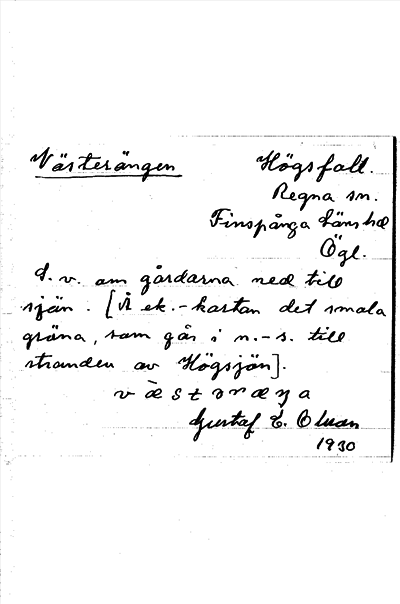 Västerängen
Högsfall.
Regna sn.
Finspånga läns hd
Ögl.
S. v. om gårdarna ned till
sjön. [Å ek.-kartan det smala
gröna, som går i n.-s. till
stranden av Högsjön].
Gustaf E. Olsson
1930